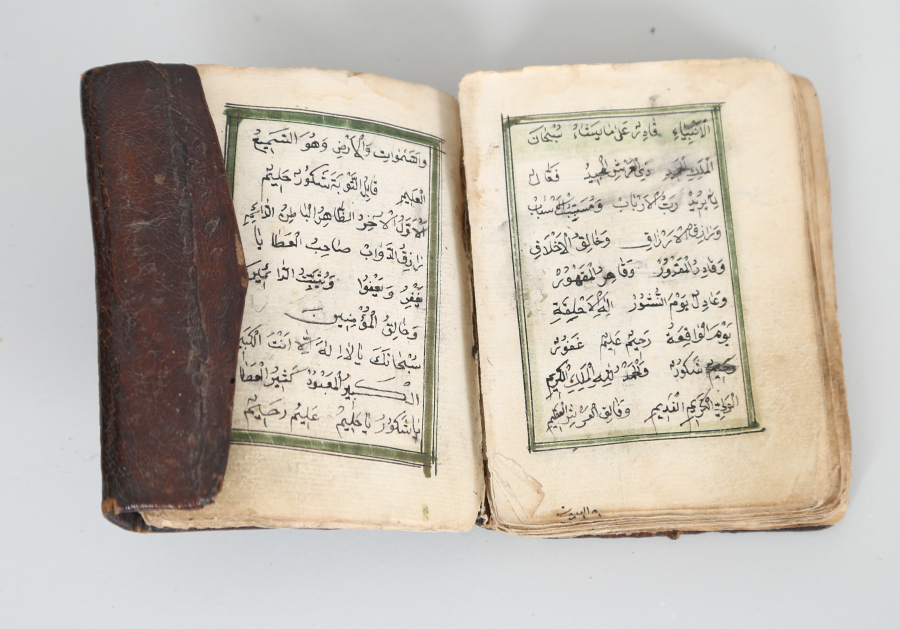 الانبياء قادر على ما يشاء سبحان
الملك الحميد ذي العرش المجيد فعال
لما يريد رب الارباب ومسبب الاسباب
ورازق الارزاق وخالق الاخلاق
وقادر المقدور وقاهر المقهور
وعادل يوم النشور اله الالهة
يوم الواقعة رحيم عليم غفور
حليم شكور والحمد لله الملك الكريم
الكريم القديم وخالق العرش العظيم
والسموات والارض وهو السميع
العليم قابل التوبة شكور حليم
الاول الآخر الظاهر الباطن الدائم
رازق الدواب صاحب العطايا
يغفر ويعفوا
وخالق المؤمنين
سبحانك يا لا اله الا انت
الكبير المعبود كثير العطا
يا شكور يا حليم عليم رحيم